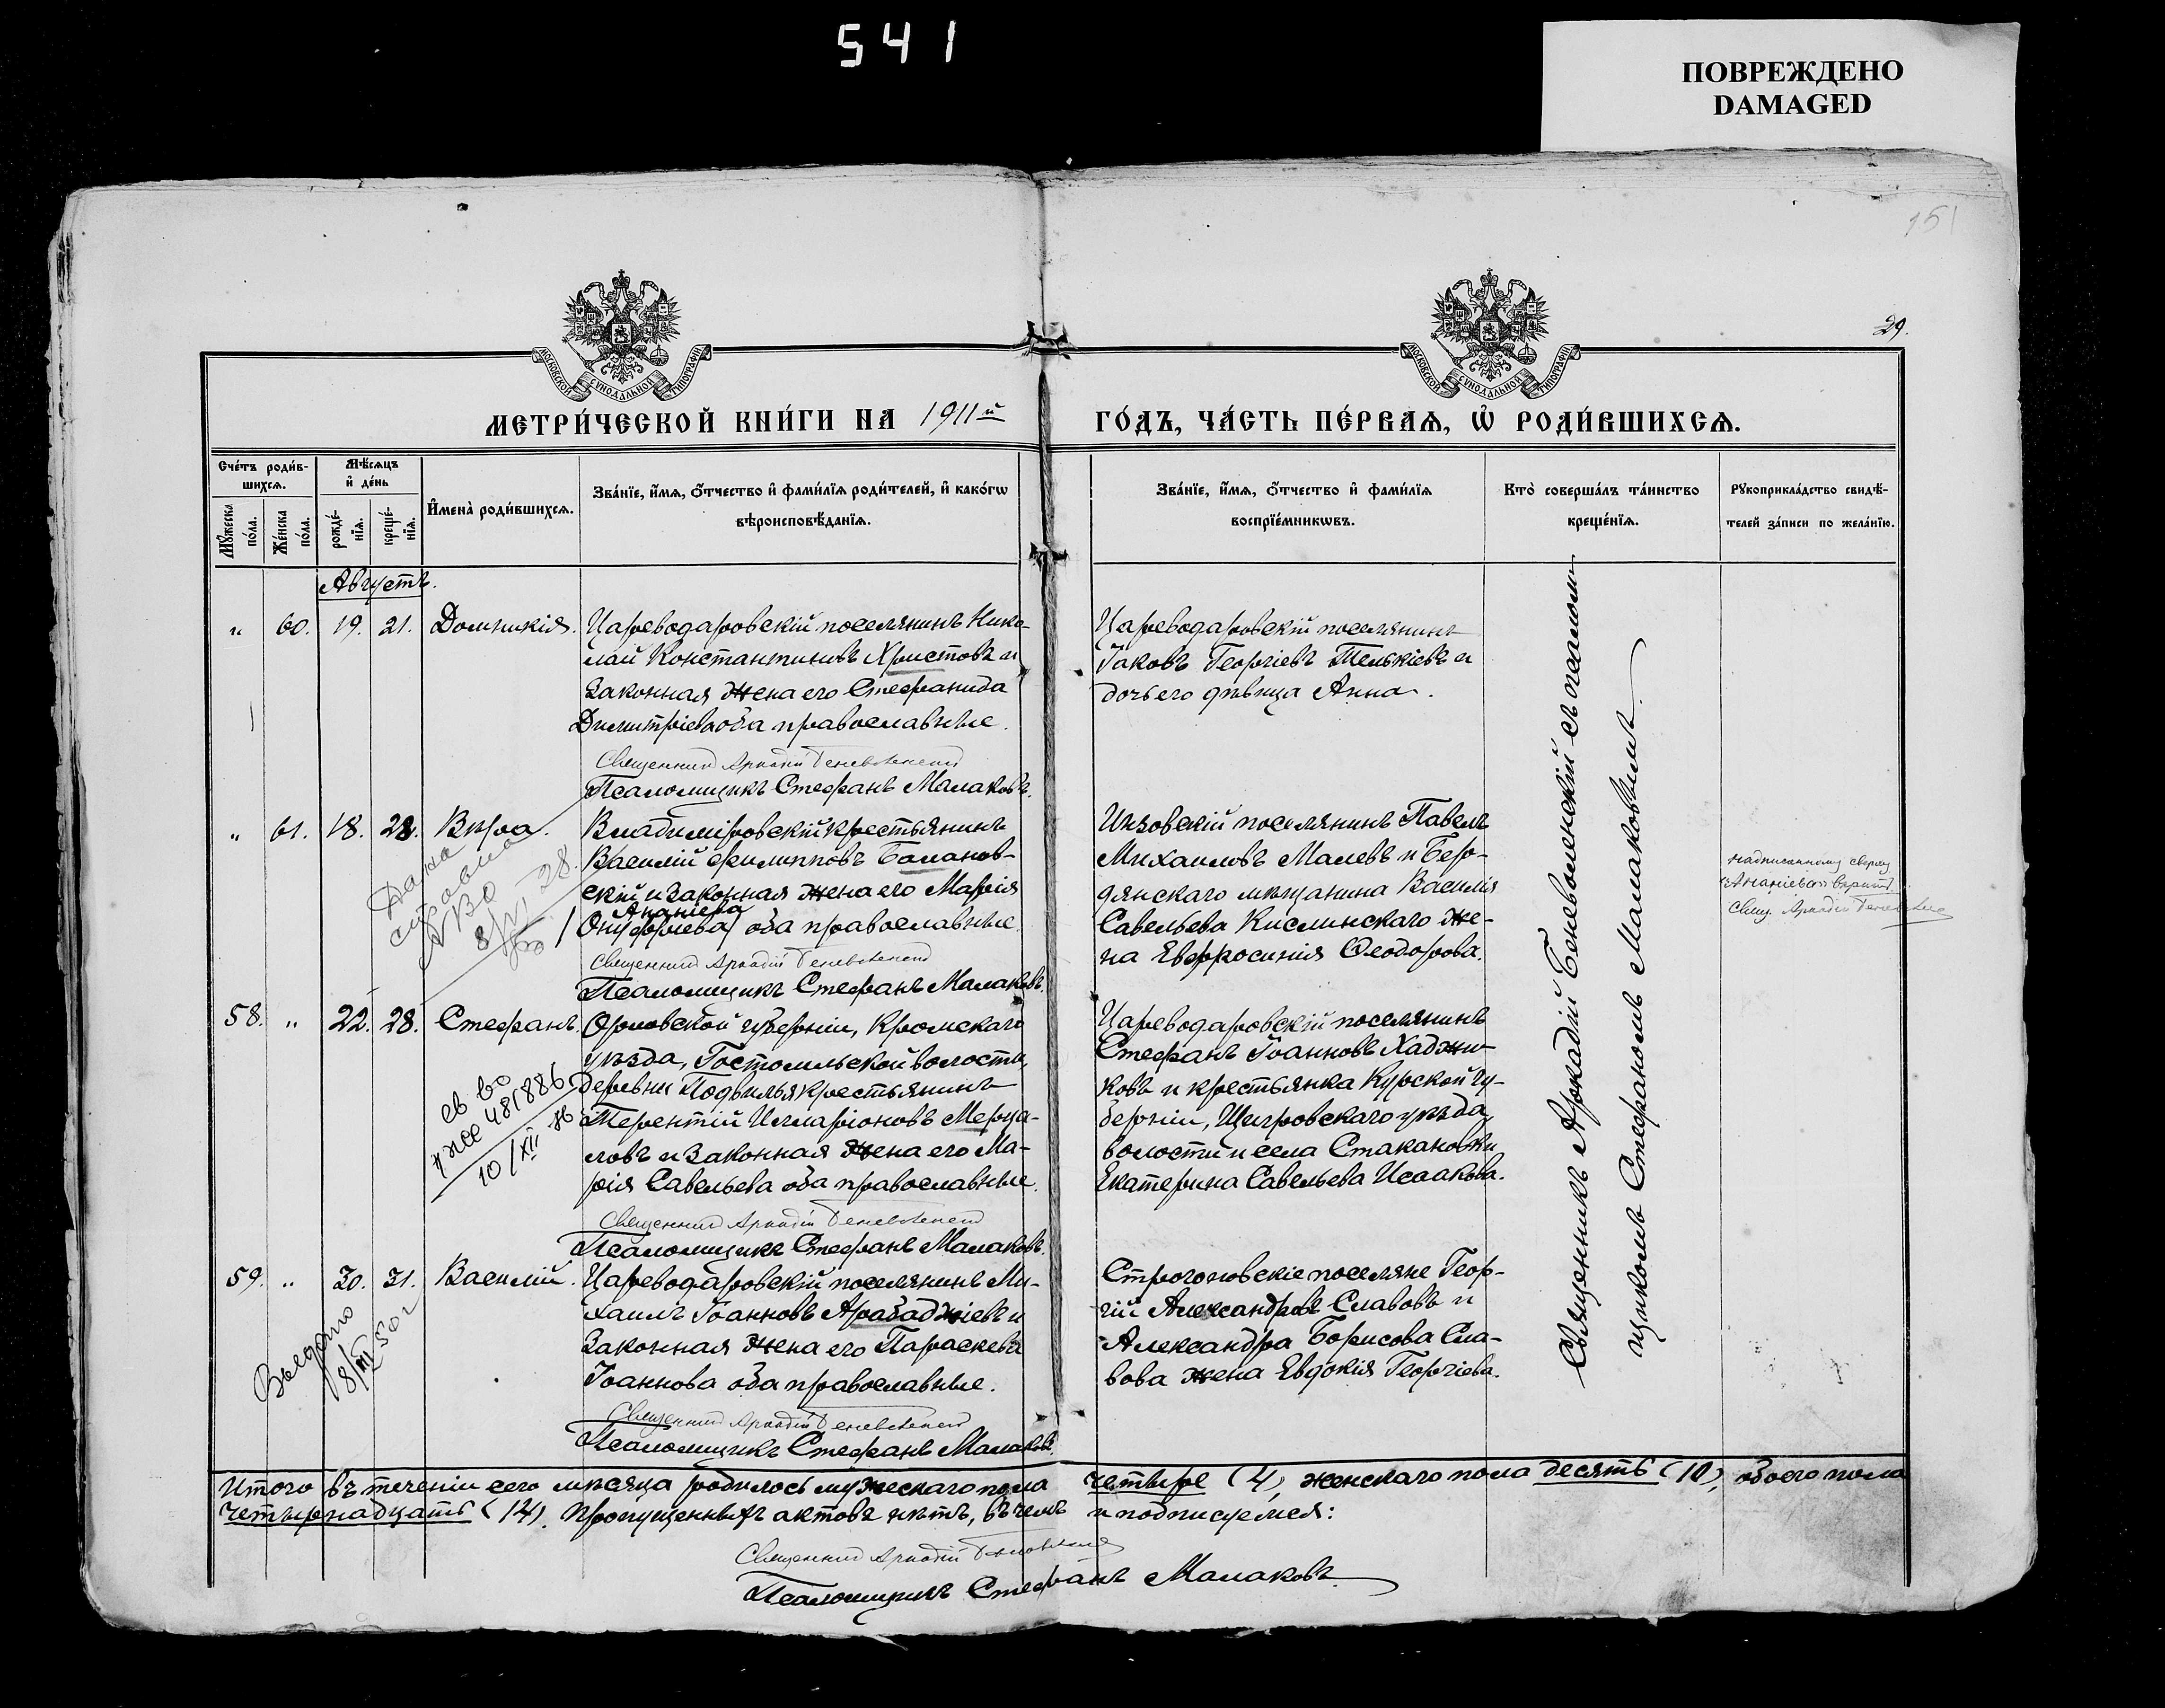 541
ПОВРЕЖДЕНО
DAMAGED
151
29.
МОСКОВСКОЙ СУНОДАЛЬНОЙ ТИПОГРАФІИ
МОСКОВСКОЙ СУНОДАЛЬНОЙ ТИПОГРАФІИ
МЕТРИ́ЧЕСКОЙ КНИ́ГИ НА 1911й ГО́ДЪ, ЧА́СТЬ ПЕ́РВАѦ, Ѡ҆ РОДИ́ВШИХСѦ.
Сче́тъ роди́в-
шихсѧ.
Мꙋ́жеска по́ла.
Же́нска по́ла.
Мѣ́сѧцъ
и҆ де́нь
рожде́-
нїѧ.
креще́-
нїѧ.
И҆мена̀ роди́вшихсѧ.
Зва́нїе, и҆́мѧ, ѻ҆́тчество и҆ фами́лїѧ роди́телей, и҆ како́гѡ
вѣроисповѣ́данїѧ.
Зва́нїе, и҆́мѧ, ѻ҆́тчество и҆ фами́лїѧ
воспрїе́мникѡвъ.
Кто̀ соверша́лъ та́инство
креще́нїѧ.
Рꙋкоприкла́дство свидѣ́-
телей за́писи по жела́нїю.
Августъ.
" 60. 19. 21. Домникія.
Цареводаровскій поселянинъ Нико-
лай Константиновъ Христовъ и
законная жена его Стефанида
Димитріева оба православные.
Священник Аркадій Беневоленский
Псаломщикъ Стефанъ Малаковъ.
Цареводаровскій поселянинъ
Іаковъ Георгіевъ Телькіевъ и
дочь его дѣвица Анна.
" 61. 18. 28. Вѣра.
Владиміровскій крестьянинъ
Василій Филипповъ Баланов-
скій и законная жена его Марія
Ананіева
Онуфріева оба православные.
Священник Аркадій Беневоленский
Псаломщикъ Стефанъ Малаковъ.
Инзовскій поселянинъ Павелъ
Михаиловъ Малевъ и Бер-
дянскаго мѣщанина Василія
Савельева Кислинскаго же-
на Евфросинія Ѳеодорова.
надписанному сверху
"Ананіева" вѣрить.
Свящ. Аркадій Беневоленский
58. " 22. 28. Стефанъ.
Орловской губерніи, Кромскаго
уѣзда, Гостомльской волости,
деревни Подвилья крестьянинъ
Терентій Илларіоновъ Мерца-
ловъ и законная жена его Ма-
рія Савельева оба православные.
Священник Аркадій Беневоленский
Псаломщикъ Стефанъ Малаковъ.
Цареводаровскій поселянинъ
Стефанъ Іоанновъ Хаджи-
ковъ и крестьянка Курской гу-
берніи, Щигровскаго уѣзда,
волости и села Стакановки
Екатерина Савельева Исаакова.
св во
481886
10/XII
59. " 30. 31. Василій.
Цареводаровскій поселянинъ Ми-
хаилъ Іоанновъ Арабаджіевъ и
законная жена его Параскева
Іоаннова оба православные.
Священник Аркадій Беневоленский
Псаломщикъ Стефанъ Малаковъ.
Строгоновскіе поселяне Геор-
гій Александровъ Славовъ и
Александра Борисова Сла-
вова жена Евдокія Георгіева.
Выдано
50г
Священникъ Аркадій Беневоленскій съ псалом-
щикомъ Стефаномъ Малаковымъ.
Итого въ теченіи сего мѣсяца родилось мужескаго пола четыре (4), женскаго пола десять (10), обоего пола
четырнадцать (14). Пропущенныхъ актовъ нѣтъ, въ чемъ и подписуемся:
Священник Аркадій Беневоленский
Псаломщикъ Стефанъ Малаковъ.